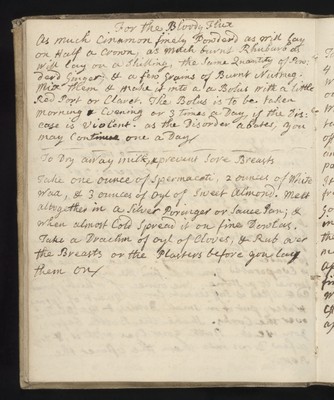 For the Bloody Flux
As much Cinnamon finely Pouderd as will lay
on Half a Crown, as much burnt Rhubarb as
will lay on a Shilling, the Same Quantity of Pou,
derd Ginger, & a few Grains of Burnt Nutmeg.
Mix them & make it into a Bolus with a little
Red Port or Claret. The Bolus is to be taken
morning & Evening or 3 Times a Day, if the Dis:
ease is Violent. as the Disorder Abates, you
may Continue one a Day
To Dry away milk, & prevent Sore Breasts
Take one ounce of Spermaceti, 2 ounces of White
Wax, & 3 ounces of Oyl of Sweet Almond. Melt
altogether in a Silver Poringer or Sauce Pan; &
when almost Cold Spread it on fine Dowlas.
Take a Drachm of Oyl of Cloves, & Rub over
the Breasts or the Plaisters before you lay
them on